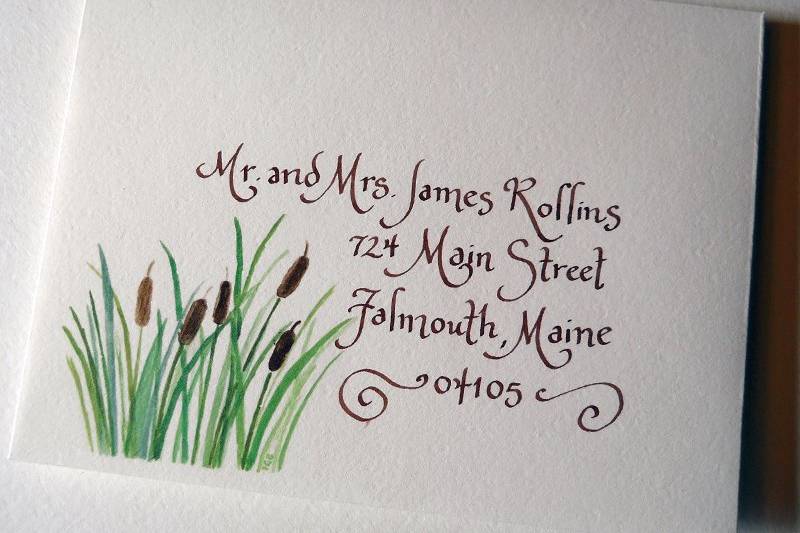 Mr. and Mrs. James Rollins
724 Main Street
Falmouth, Maine
04105